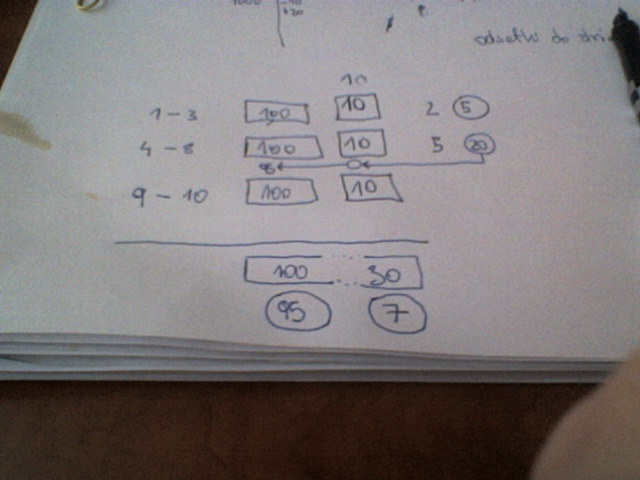 1000 -10
+20
odsetki do
10
1-3 100 10 2 5
4-8 100 10 5 20
95 0
9-10 100 10
100 30
95 7